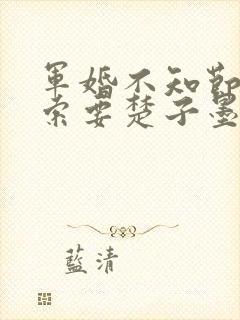 軍婚不知節
索要楚子墨
藍清